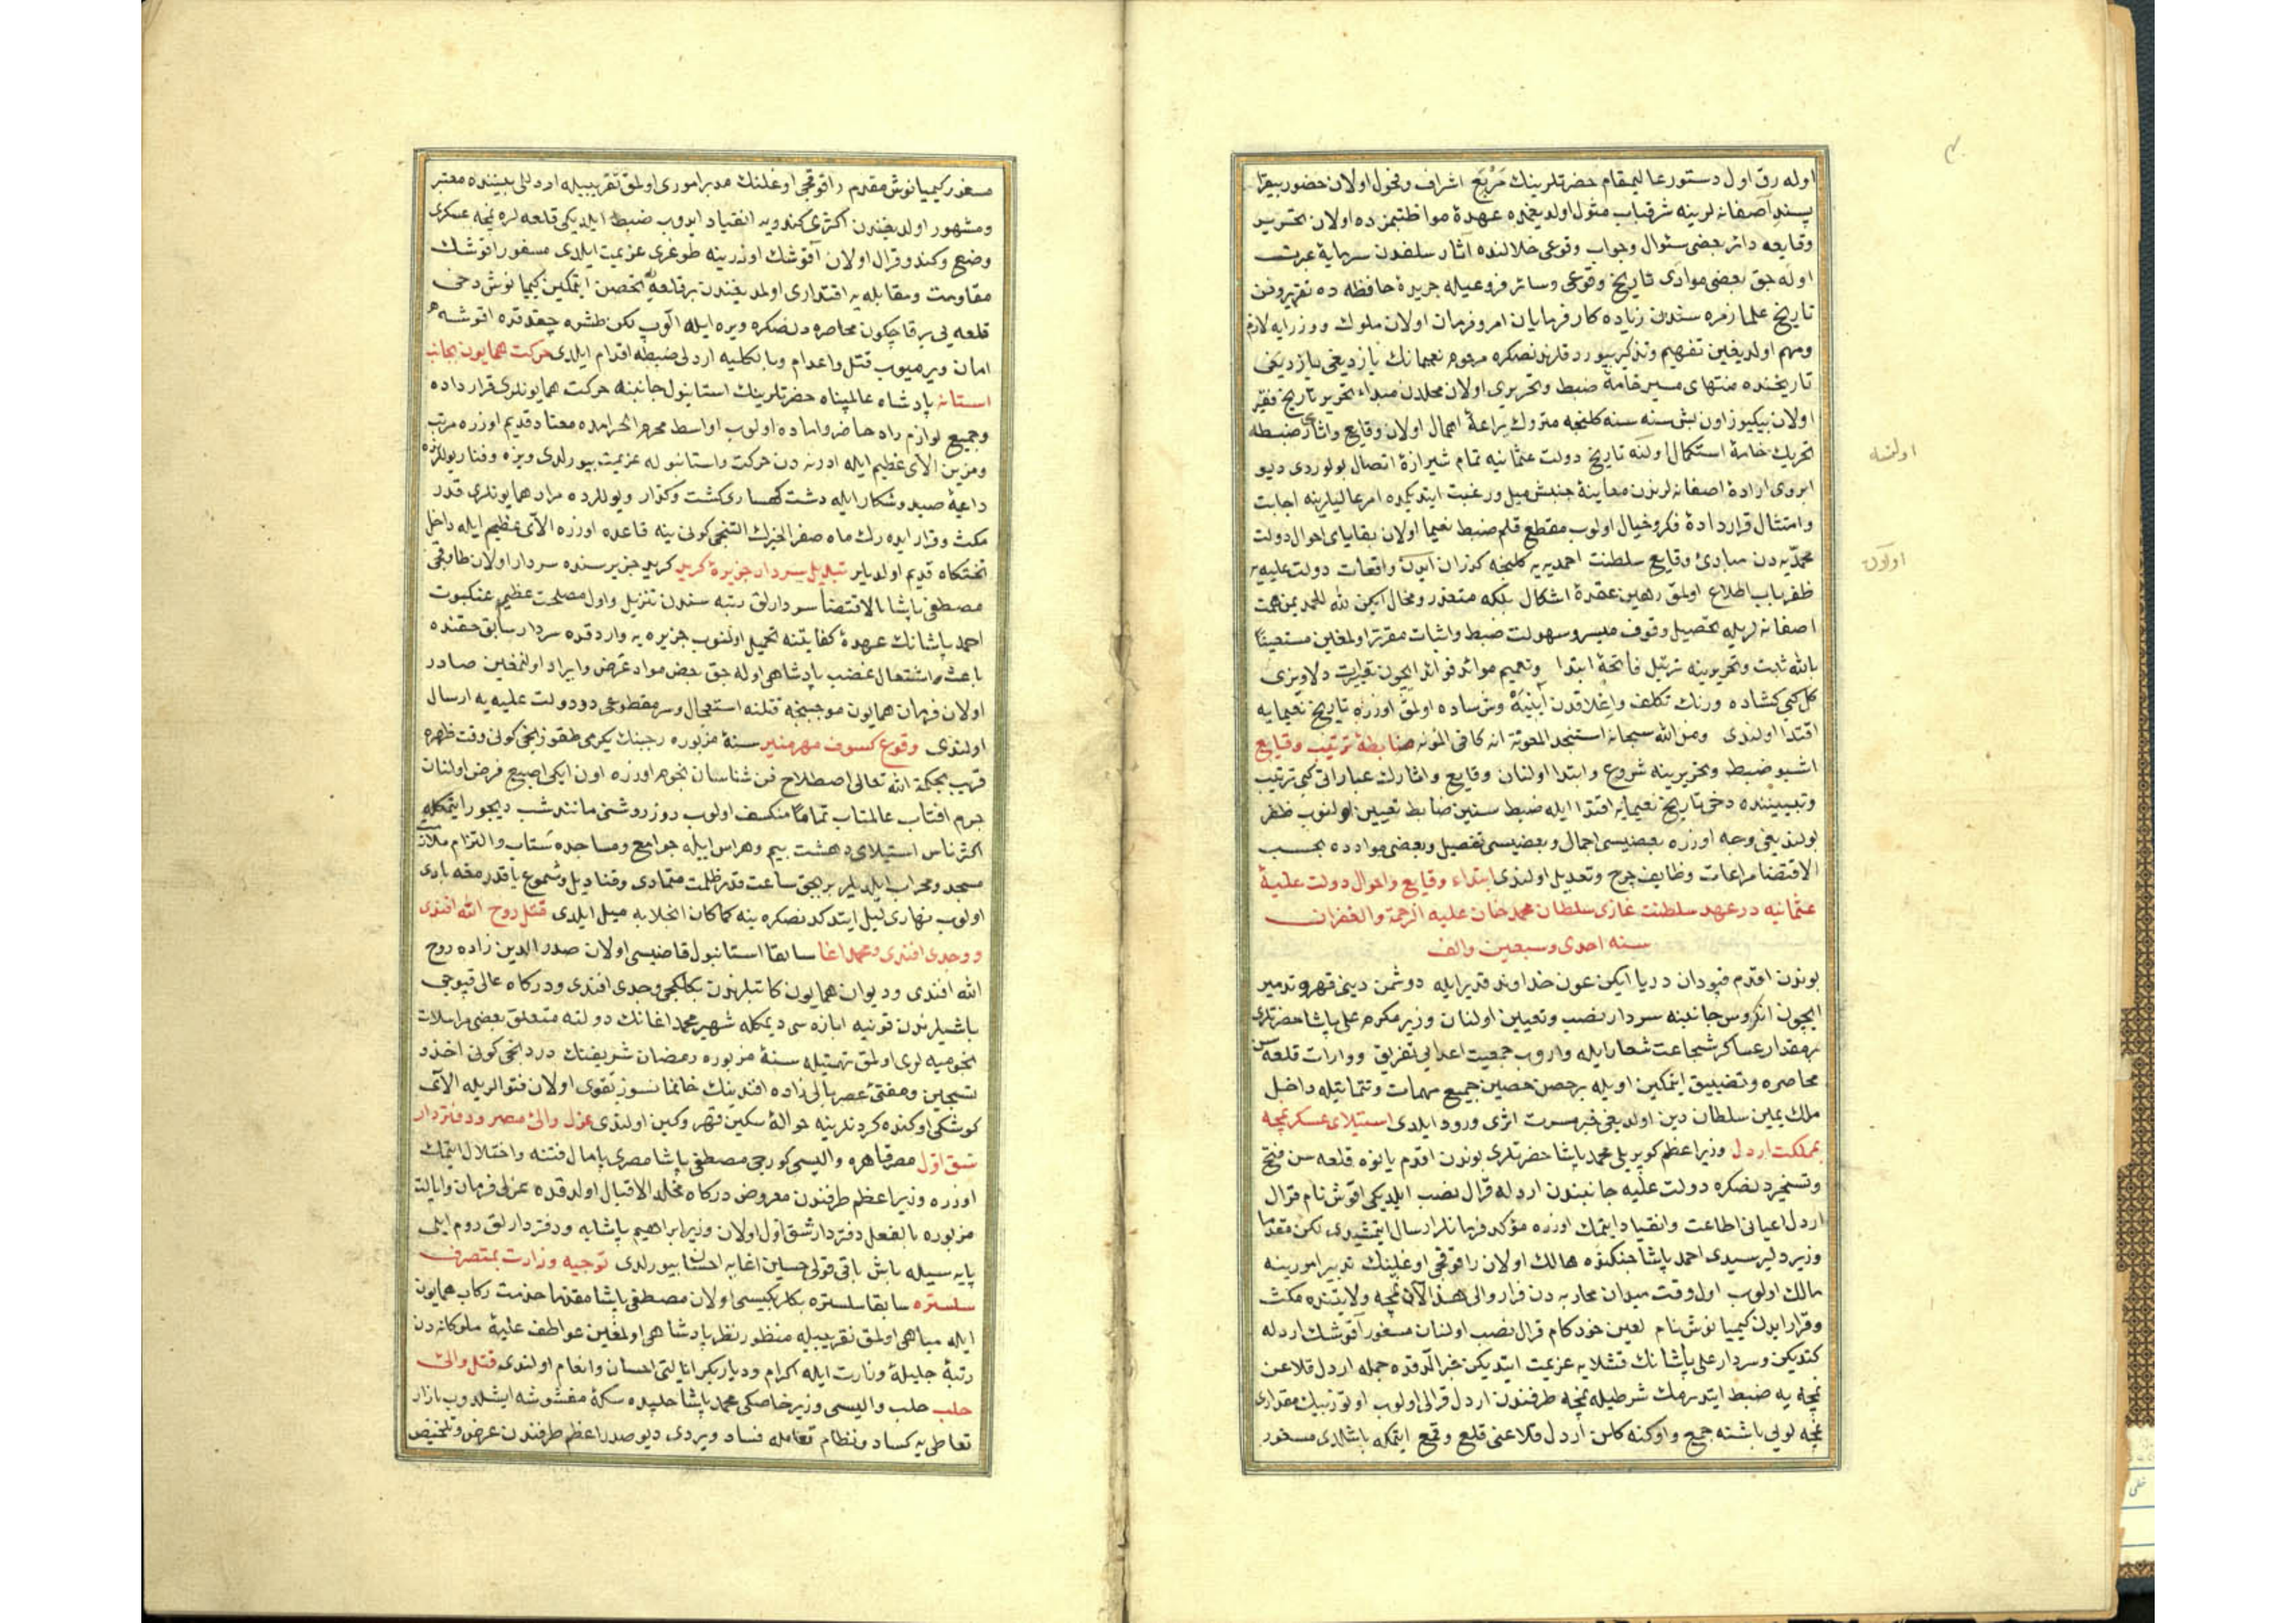 اوله رق اول دستور عاليمقام حضرتلرينك مَرْبَع اشراف و فحول اولان حضور بيقرا
پسند آصفانه لرينه شرفياب مثول اولديغمده عهدۀ مواظبتمزده اولان تحرير
وقايعه دائر بعضى سئوال وجواب وقوعى خلالنده آثار سلفدن سرمايۀ عبرت
اوله جق بعضى موادى تاريخ وقوعى وسائر فروعيله جريدۀ حافظه ده تقرير وفن
تاريخ علما زمره سندن زياده كارفرمايان امر وفرمان اولان ملوك ووزرايه لازم
ومهم اولديغين تفهيم وتذكير بيوردقلرندنصكره مرحوم نعيمانك يازديغى يازديغى
تاريخنده منتهاى مسير خامۀ ضبط وتحريرى اولان محلدن مبداء تحرير تاريخ فقير
اولان بيكيوز اون بش سنه سنه كلنجه متروك يراعۀ اهمال اولان وقايع واثارى ضبطه
تحريك خامۀ استكمال اولنه تاريخ دولت عثمانيه تمام شيرازۀ اتصال بولوردى ديو
ابروى ارادۀ اصفانه لرندن معاينۀ جنبش ميل ورغبت ايتديكمده امر عاليلرينه اجابت
وامتثال قراردادۀ فكر وخيال اولوب مقطع قلم ضبط نعيما اولان بقاياى احوال دولت
محمديه دن مبادئ وقايع سلطنت احمديه يه كلنجه كذران ايدن واقعات دولت عليه يه
ظفرياب اطلاع اولمق رهين عقدۀ اشكال بلكه متعذر ومحال ايكن لله الحمد يمن همت
اصفانه لريله تحصيل وقوف ميسر وسهولت ضبط واثبات مقرر اولمغين مستعينًا
بالله ثابت وتحريرينه ترتيل فاتحۀ ابتدا وتعميم موائد فوائد ايچون تعبيرات دلاويزى
كل كبى كشاده ورنك تكلف واغلاقدن آيينه وش ساده اولمق اوزره تاريخ نعيمايه
اقتدا اولندى ومن الله سبحانه استنجد المعونة انه كافى المؤنه ضابطۀ ترتيب وقايع
اشبو ضبط وتحريرينه شروع وابتدا اولنان وقايع واثارك عباراتى كبى ترتيب
وتبيينده دخى تاريخ نعيمايه اقتدا ايله ضبط سنين ضابط تعيين اولنوب ظفر
بولنديغى وجه اوزره بعضيسى اجمال وبعضيسى تفصيل وبعضى موادده بحسب
الاقتضا مراعات وظايف جرح وتعديل اولندى ابتداء وقايع واحوال دولت عليۀ
عثمانيه در عهد سلطنت غازى سلطان محمد خان عليه الرحمة والغفران
سنه احدى وسبعين والف
بوندن اقدم قپودان دريا ايكن عون خداوند قدير ايله دوشمن دينى قهر وتدمير
ايچون انكروس جانبنه سردار نصب وتعيين اولنان وزير مكرم على پاشا حضرتلرى
برمقدار عساكر شجاعت شعار ايله واروب جمعيت اعدايى تفريق ووارات قلعه سن
محاصره وتضييق ايتمكين اويله برحصن حصين جميع مهمات وتتماتيله داخل
ملك يمين سلطان دين اولديغى خبر مسرت اثرى ورود ايلدى استيلاى عسكر نمچه
بمملكت اردل وزير اعظم كوپريلى محمد پاشا حضرتلرى بوندن اقدم يانوه قلعه سن فتح
وتسخيردنصكره دولت عليه جانبندن اردله قرال نصب ايلديكى اقوش نام قرال
اردل اعيانى اطاعت وانقياد ايتمك اوزره مؤكد فرمانلر ارسال ايتمشيدى لكن مقدما
وزير دلير سيدى احمد پاشا جنكنده هالك اولان راقوقجى اوغلينك تدبير امورينه
مالك اولوب اول وقت ميدان محاربه دن فرار والى هذا الآن نمچه ولايتنده مكث
وقرار ايدن كيميانوش نام لعين خودكام قرال نصب اولنان مسفور آقوشك اردله
كنديكن وسردار على پاشانك قشلايه عزيمت ايتديكن خبر الدقده جمله اردل قلاعن
نمچه يه ضبط ايتدرمك شرطيله نمچه طرفندن اردل قرالى اولوب اوتوز بيك مقدارى
نمچه لويى باشنه جمع واوكنه كلن اردل قلاعنى قلع وقمع ايتمكه باشلدى مسفور
اولنسه
اولان
مسفور كيميانوش مقدم راقوقجى اوغلنك مدبر امورى اولمق تقريبيله اردللى بيننده معتبر
ومشهور اولديغندن اكثرى كندويه انقياد ايدوب ضبط ايلديكى قلعه لره نمچه عسكرى
وضع وكندو قرال اولان آقوشك اوزرينه طوغرى عزيمت ايلدى مسفور اقوشك
مقاومت ومقابله يه اقتدارى اولمديغندن برقلعه يه تحصن ايتمكين كيميانوش دخى
قلعه يى برقاچكون محاصره دنصكره ويره ايله الوب لكن طشره چقدقده اقوشه
امان ويرميوب قتل واعدام وبالكليه اردلى ضبطه اقدام ايلدى حركت همايون بجانب
استانه پادشاه عالمپناه حضرتلرينك استانبول جانبنه حركت همايونلرى قرارداده
وجميع لوازم راه حاضر واماده اولوب اواسط محرم الحرامده معتاد قديم اوزره مرتب
ومزين الاى عظيم ايله ادرنه دن حركت واستانبوله عزيمت بيورلدى ويزه وفنار يوللرنده
داعيۀ صيد وشكار ايله دشت كهسارى كشت وكذار ويوللرده مراد همايونلرى قدر
مكث وقرار ايده رك ماه صفر الخيرك التنجى كونى ينه قاعده اوزره الاى عظيم ايله داخل
تختكاه قديم اولديلر تبديل سردار جزيرۀ كريد كريد جزيره سنده سردار اولان طاوقجى
مصطفى پاشا بالاقتضا سردارلق رتبه سندن تنزيل واول مصلحت عظيم عنكبوت
احمد پاشانك عهدۀ كفايتنه تحميل اولنوب جزيره يه واردقده سردار سابق حقنده
باعث اشتعال غضب پادشاهى اوله جق بعض مواد عرض وايراد اولنمغين صادر
اولان فرمان همايون موجبنجه قتلنه استعجال وسر مقطوعى دردولت عليه يه ارسال
اولندى وقوع كسوف مهر منير سنۀ مزبوره رجبنك يكرمى طقوزنجى كونى وقت ظهره
قريب بحكمة الله تعالى اصطلاح فن شناسان نجوم اوزره اون ايكى اصبع فرض اولنان
جرم افتاب عالمتاب تمامًا منكسف اولوب روز روشنى مانند شب ديجور ايتمكله
اكثر ناس استيلاى دهشت بيم وهراس ايله جوامع ومساجده شتاب والتزام ملازمت
مسجد ومحراب ايلديلر بربچق ساعت قدر ظلمت متمادى وقناديل وشموع ياقدرمغه بادى
اولوب نهارى ليل ايتدكدنصكره ينه كماكان انجلايه ميل ايلدى قتل روح الله افندى
ووجدى افندى ومحمد اغا سابقا استانبول قاضيسى اولان صدر الدين زاده روح
الله افندى وديوان همايون كاتبلرندن بكلكجى وجدى افندى ودركاه عالى قپوجى
باشيلرندن قونيه ابازه سى ديمكله شهير محمد اغانك دولته متعلق بعضى مراسلات
نجوميه لرى اولمق تهمتيله سنۀ مزبوره رمضان شريفنك دردنجى كونى اخذ و
تسجين ومفتئ عصر بالى زاده افندينك خانمانسوز تقوى اولان فتوالريله الاى
كوشكى اوكنده كردنلرينه حوالۀ سكين قهر وكين اولندى عزل والئ مصر ودفتردار
شق اول مصر قاهره واليسى كورجى مصطفى پاشا مصرى پامال فتنه واختلال ايتمك
اوزره وزير اعظم طرفندن معروض دركاه مخلد الاقبال اولدقده عزلى فرمان وايالت
مزبوره بالفعل دفتردار شق اول اولان وزير ابراهيم پاشايه ودفتردارلق روم ايلى
پايه سيله باش باقى قولى حسين اغايه احسان بيورلدى توجيه وزارت بمتصرف
سلستره سابقا سلستره بكلربكيسى اولان مصطفى پاشا مقدما خدمت ركاب همايون
ايله مباهى اولمق تقريبيله منظور نظر پادشاهى اولمغين عواطف عليۀ ملوكانه دن
رتبۀ جليلۀ وزارت ايله اكرام وديار بكر ايالتى احسان وانعام اولندى قتل والئ
حلب حلب واليسى وزير خاصكى محمد پاشا حلبده سكۀ مغشوشه ايشلدوب بازار
تعاطى يه كساد ونظام تعامله فساد ويردى ديو صدر اعظم طرفندن عرض وتلخيص